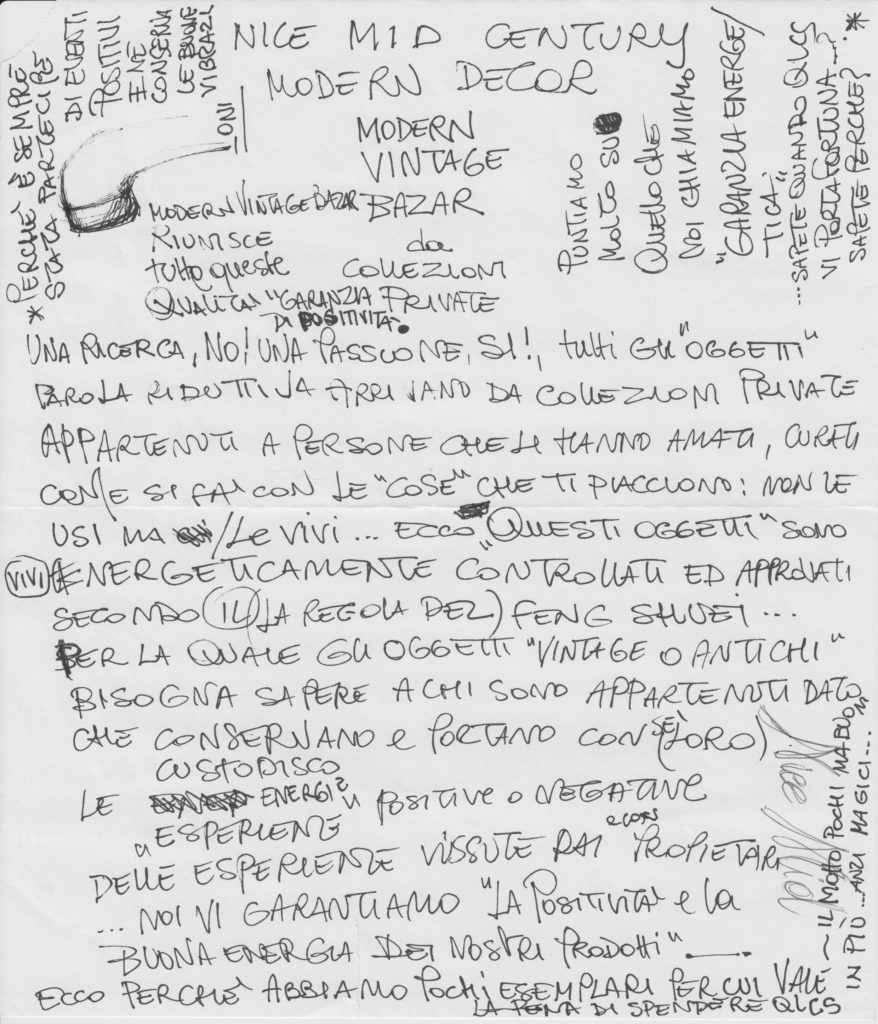 NICE MID CENTURY
MODERN DECOR
MODERN
VINTAGE
BAZAR
da
COLLEZIONI
PRIVATE
MODERN VINTAGE BAZAR
RIUNISCE
tutte queste
QUALITA' "GARANZIA
DI POSITIVITA'.
PUNTIAMO
MOLTO SU
QUELLO CHE
NOI CHIAMIAMO
"GARANZIA ENERGE/
TICA"
... SAPETE QUANDO QLCS
VI PORTA FORTUNA...?
SAPETE PERCHE'? *
* PERCHE' È SEMPRE
STATA PARTECIPE
DI EVENTI
POSITIVI
E NE
CONSERVA
LE BUONE
VIBRAZI
ONI
UNA RICERCA, NO! UNA PASSIONE, SI!, tutti GLI "OGGETTI"
PAROLA RIDUTTIVA ARRIVANO DA COLLEZIONI PRIVATE
APPARTENUTI A PERSONE CHE LI HANNO AMATI, CURATI
COME SI FAI CON LE "COSE" CHE TI PIACCIONO: NON LE
USI MA / LE VIVI ... ECCO "QUESTI OGGETTI" SONO
VIVI ENERGETICAMENTE CONTROLLATI ED APPROVATI
SECONDO (IL) (LA REGOLA DEL) FENG SHUEI ...
PER LA QUALE GLI OGGETTI "VINTAGE O ANTICHI"
BISOGNA SAPERE A CHI SONO APPARTENUTI DATO
CHE CONSERVANO e PORTANO CON SÈ (LORO)
CUSTODISCO
LE ENERGIE POSITIVE O NEGATIVE
"ESPERIENZE"
DELLE ESPERIENZE VISSUTE DAI PROPIETARI
... NOI VI GARANTIAMO "LA POSITIVITA' e la
BUONA ENERGIA DEI NOSTRI PRODOTTI" ...
ECCO PERCHE' ABBIAMO POCHI ESEMPLARI PER CUI VALE
LA PENA DI SPENDERE QLCS
~ IL MOTTO POCHI MA BUONI
IN PIU' ... ANZI MAGICI ...
Nice Mid